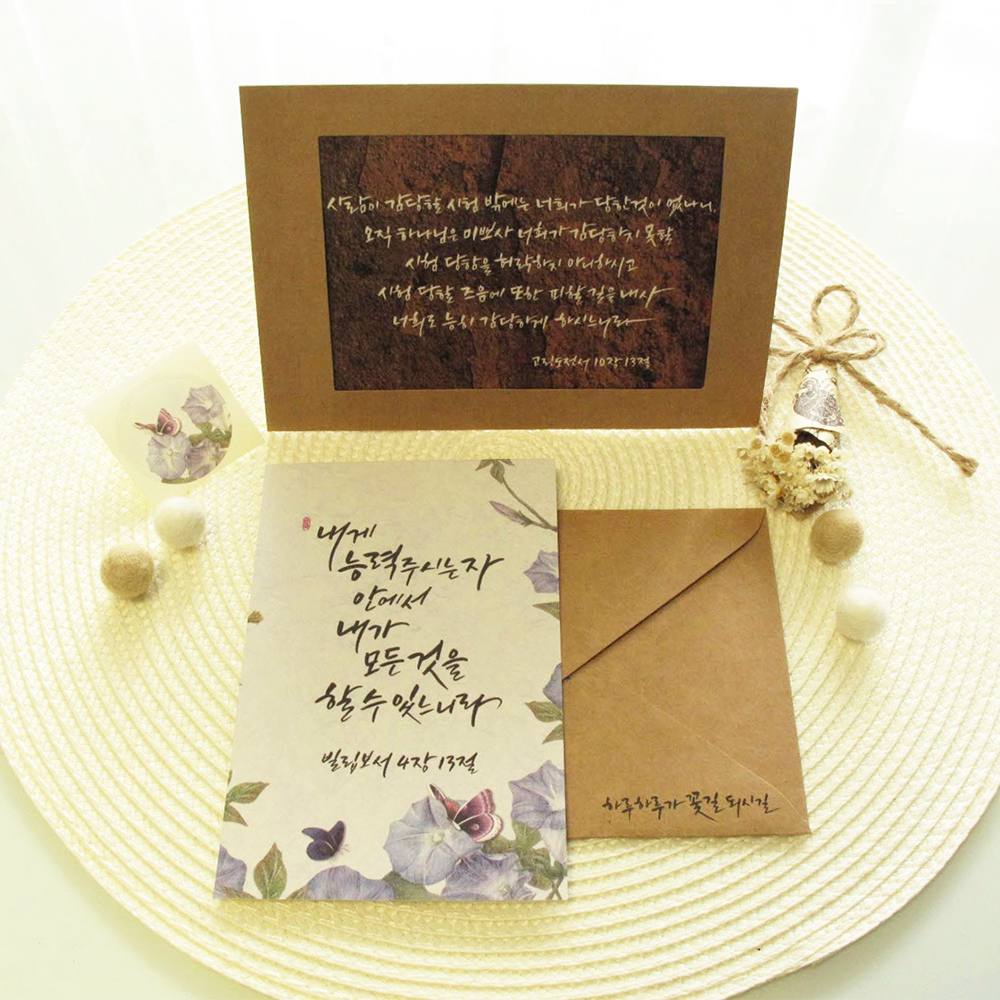 사람이 감당할 시험 밖에는 너희가 당한것이 없나니,
오직 하나님은 미쁘사 너희가 감당하지 못할
시험 당함을 허락하지 아니하시고
시험 당할 즈음에 또한 피할 길을 내사
너희로 능히 감당하게 하시느니라
고린도전서 10장 13절
내게
능력주시는자
안에서
내가
모든것을
할수있느니라
빌립보서 4장 13절
하루하루가 꽃길 되시길